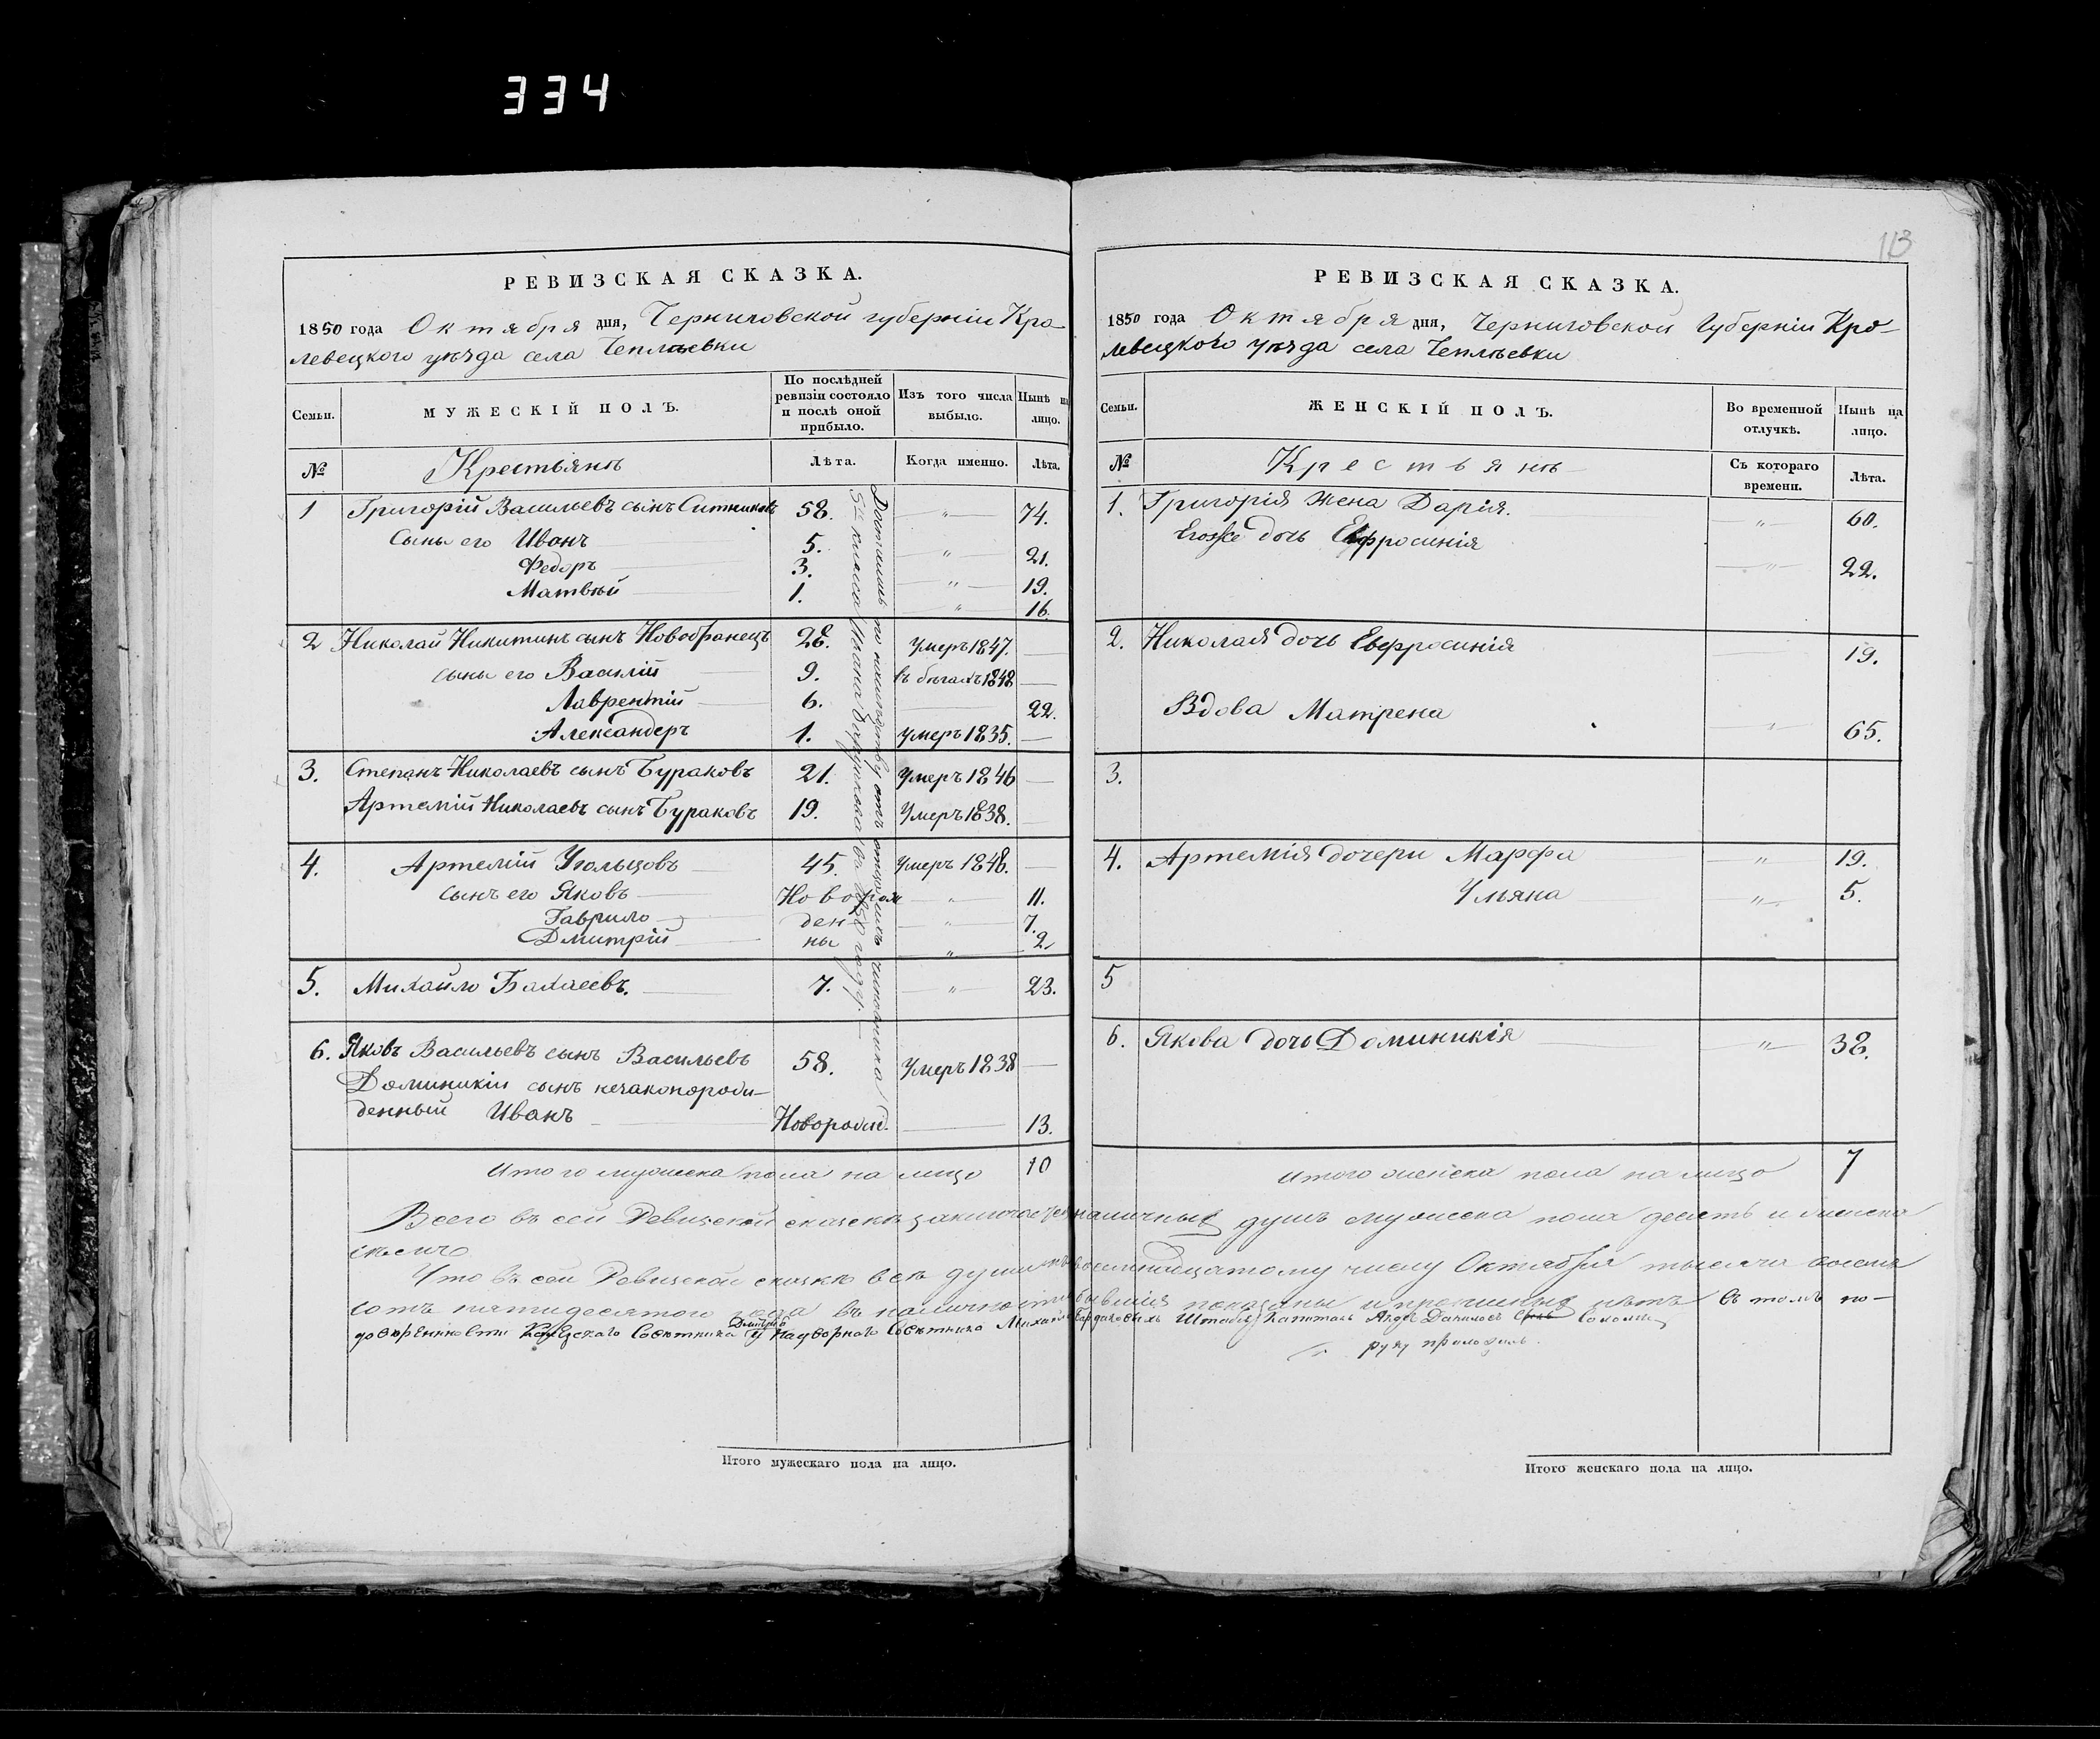 334
113
РЕВИЗСКАЯ СКАЗКА.
1850 года Октября дня, Черниговской губерніи Кро-
левецкого уѣзда села Чеплѣевки
Семьи.
МУЖЕСКІЙ ПОЛЪ.
По послѣдней ревизіи состояло и послѣ оной прибыло.
Изъ того числа выбыло.
Нынѣ на лицо.
№ Крестьянъ Лѣта. Когда именно. Лѣта.
1 Григорій Васильевъ сынъ Ситниковъ 58. — " — 74.
Сыны его Иванъ 5. — " — 21.
Федоръ 3. — " — 19.
Матвѣй 1. — " — 16.
2 Николай Никитинъ сынъ Новобранецъ 28. Умеръ 1847. —
сыны его Василій 9. въ бѣгахъ 1848 —
Лаврентій 6. — 22.
Александеръ 1. умеръ 1835. —
3. Степанъ Николаевъ сынъ Бураковъ 21. Умеръ 1846 —
Артемій Николаевъ сынъ Бураковъ 19. Умеръ 1838. —
4. Артемій Угольцовъ 45. Умеръ 1848. —
сынъ его Яковъ Новорож — " — 11.
Гаврило ден- — " — 7.
Дмитрій ны — " — 2
5. Михайло Бахаеевъ. 7. — " — 23.
6. Яковъ Васильевъ сынъ Васильевъ 58. Умеръ 1838 —
Доминикіи сынъ незаконорож-
денный Иванъ Новорожд. — 13.
Достались по наслѣдству отъ чиновника
5го класса Ивана въ году.
Итого мужеска пола на лицо 10
РЕВИЗСКАЯ СКАЗКА.
1850 года Октября дня, Черниговской Губерніи Кро-
левецкого уѣзда села Чеплѣевки
Семьи.
ЖЕНСКІЙ ПОЛЪ.
Во временной отлучкѣ.
Нынѣ на лицо.
№ Крестьянъ Съ котораго времени. Лѣта.
1. Григорія жена Дарія. — " — 60.
Егожъе дочь Евфросинія — " — 22.
2. Николая дочь Евфросинія — 19.
Вдова Матрена — " — 65.
3.
4. Артемія дочери Марфа — " — 19.
Ульяна — " — 5.
5
6. Якова дочь Доминикія — " — 38.
Итого женска пола на лицо 7
Всего въ сей Ревизской сказкѣ заключается наличныхъ душъ мужеска пола десять и женска
семь
Что въ сей Ревизской сказкѣ всѣ души къ восемнадцатому числу Октября тысяча восемь
сотъ пятидесятого года въ наличности бывшія показаны и прописныхъ нѣтъ въ томъ по-
довѣренности Совѣтника Дмитрія и Надворнаго Совѣтника Михаила Штабсъ Капитанъ Андр. Даниловъ сынъ
руку приложилъ.
Итого мужескаго пола на лицо.
Итого женскаго пола на лицо.